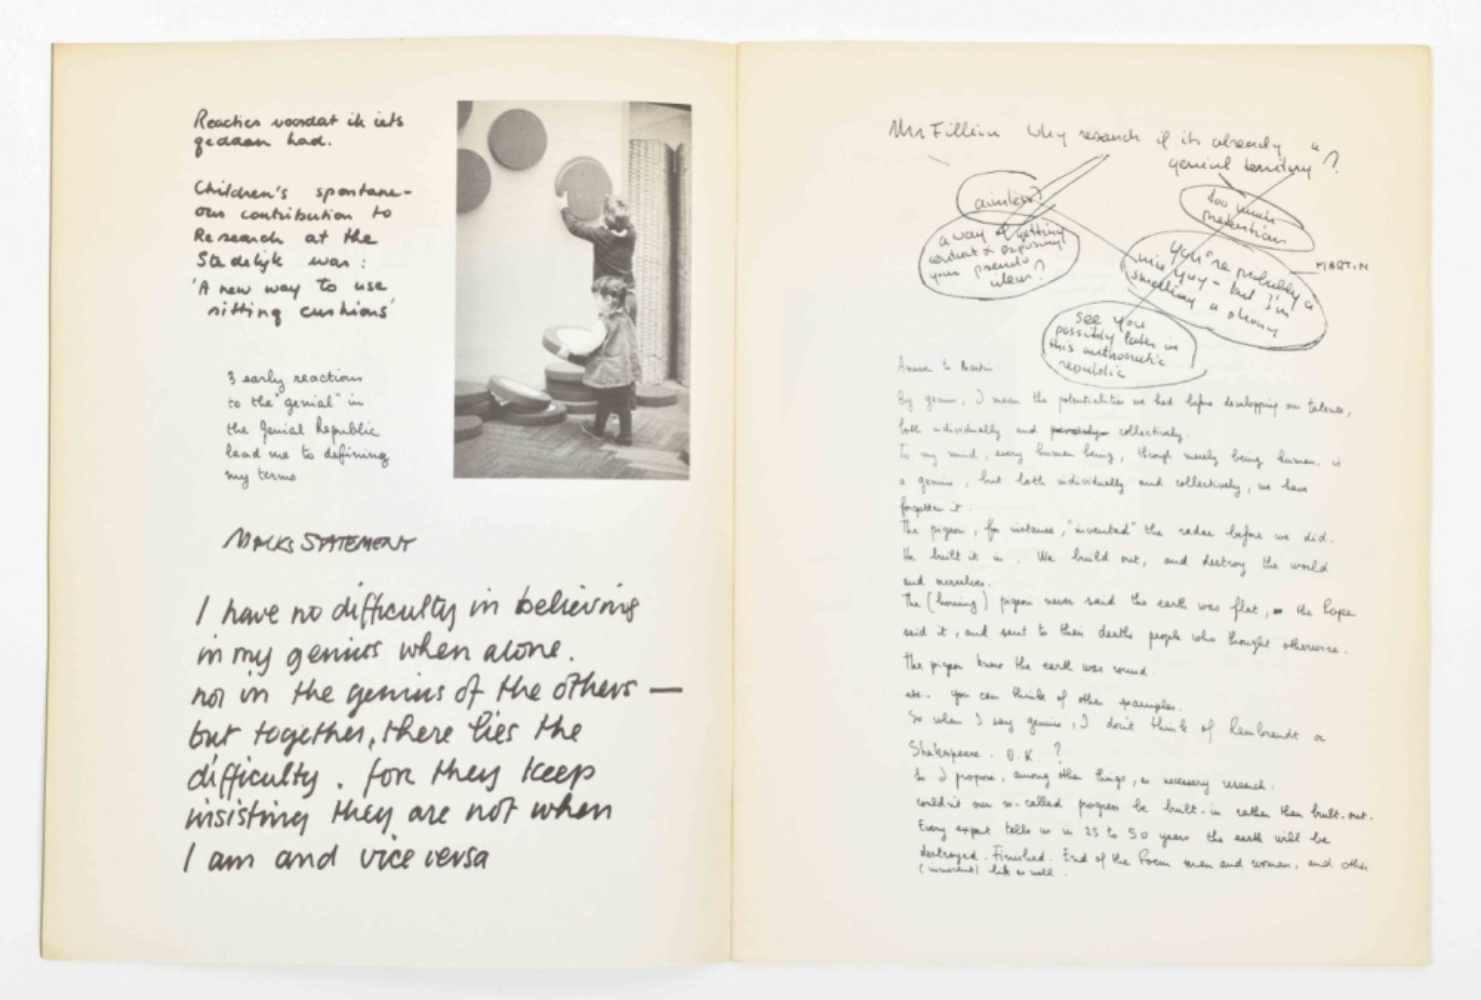 Reacties voordat ik iets
gedaan had.
Children's spontane-
ous contribution to
Research at the
Stedelijk was:
'A new way to use
sitting cushions'
3 early reactions
to the "genial" in
the Genial Republic
lead me to defining
my terms
STATEMENT
I have no difficulty in believing
in my genius when alone.
nor in the genius of the others —
but together, there lies the
difficulty. for they keep
insisting they are not when
I am and vice versa
Mr Filliou Why research if its already a
genial territory?
aimless?
too much
pretention
a way of getting
& exposing
your pseudo
ideas?
You're probably a
nice guy - but I'm
smelling a phoney
MARTIN
See you
possibly later in
this
republic
Answer to Martin
By genius, I mean the potentialities we had before developping our talents,
both individually and collectively.
To my mind, every human being, through merely being human, is
a genius, but both individually and collectively, we have
forgotten it.
The pigeon, for instance, "invented" the radar before we did.
He built it in. We build out, and destroy the world
and ourselves.
The (homing) pigeon never said the earth was flat, the Pope
said it, and sent to their deaths people who thought otherwise.
The pigeon knew the earth was round.
etc. you can think of other examples.
So when I say genius, I don't think of Rembrandt or
Shakespeare. O.K.?
So I propose, among other things, as necessary research:
couldn't our so-called progress be built-in rather than built-out.
Every expert tells us in 25 to 50 years the earth will be
destroyed. Finished. End of the Poem man and woman, and other
(innocent) life as well.